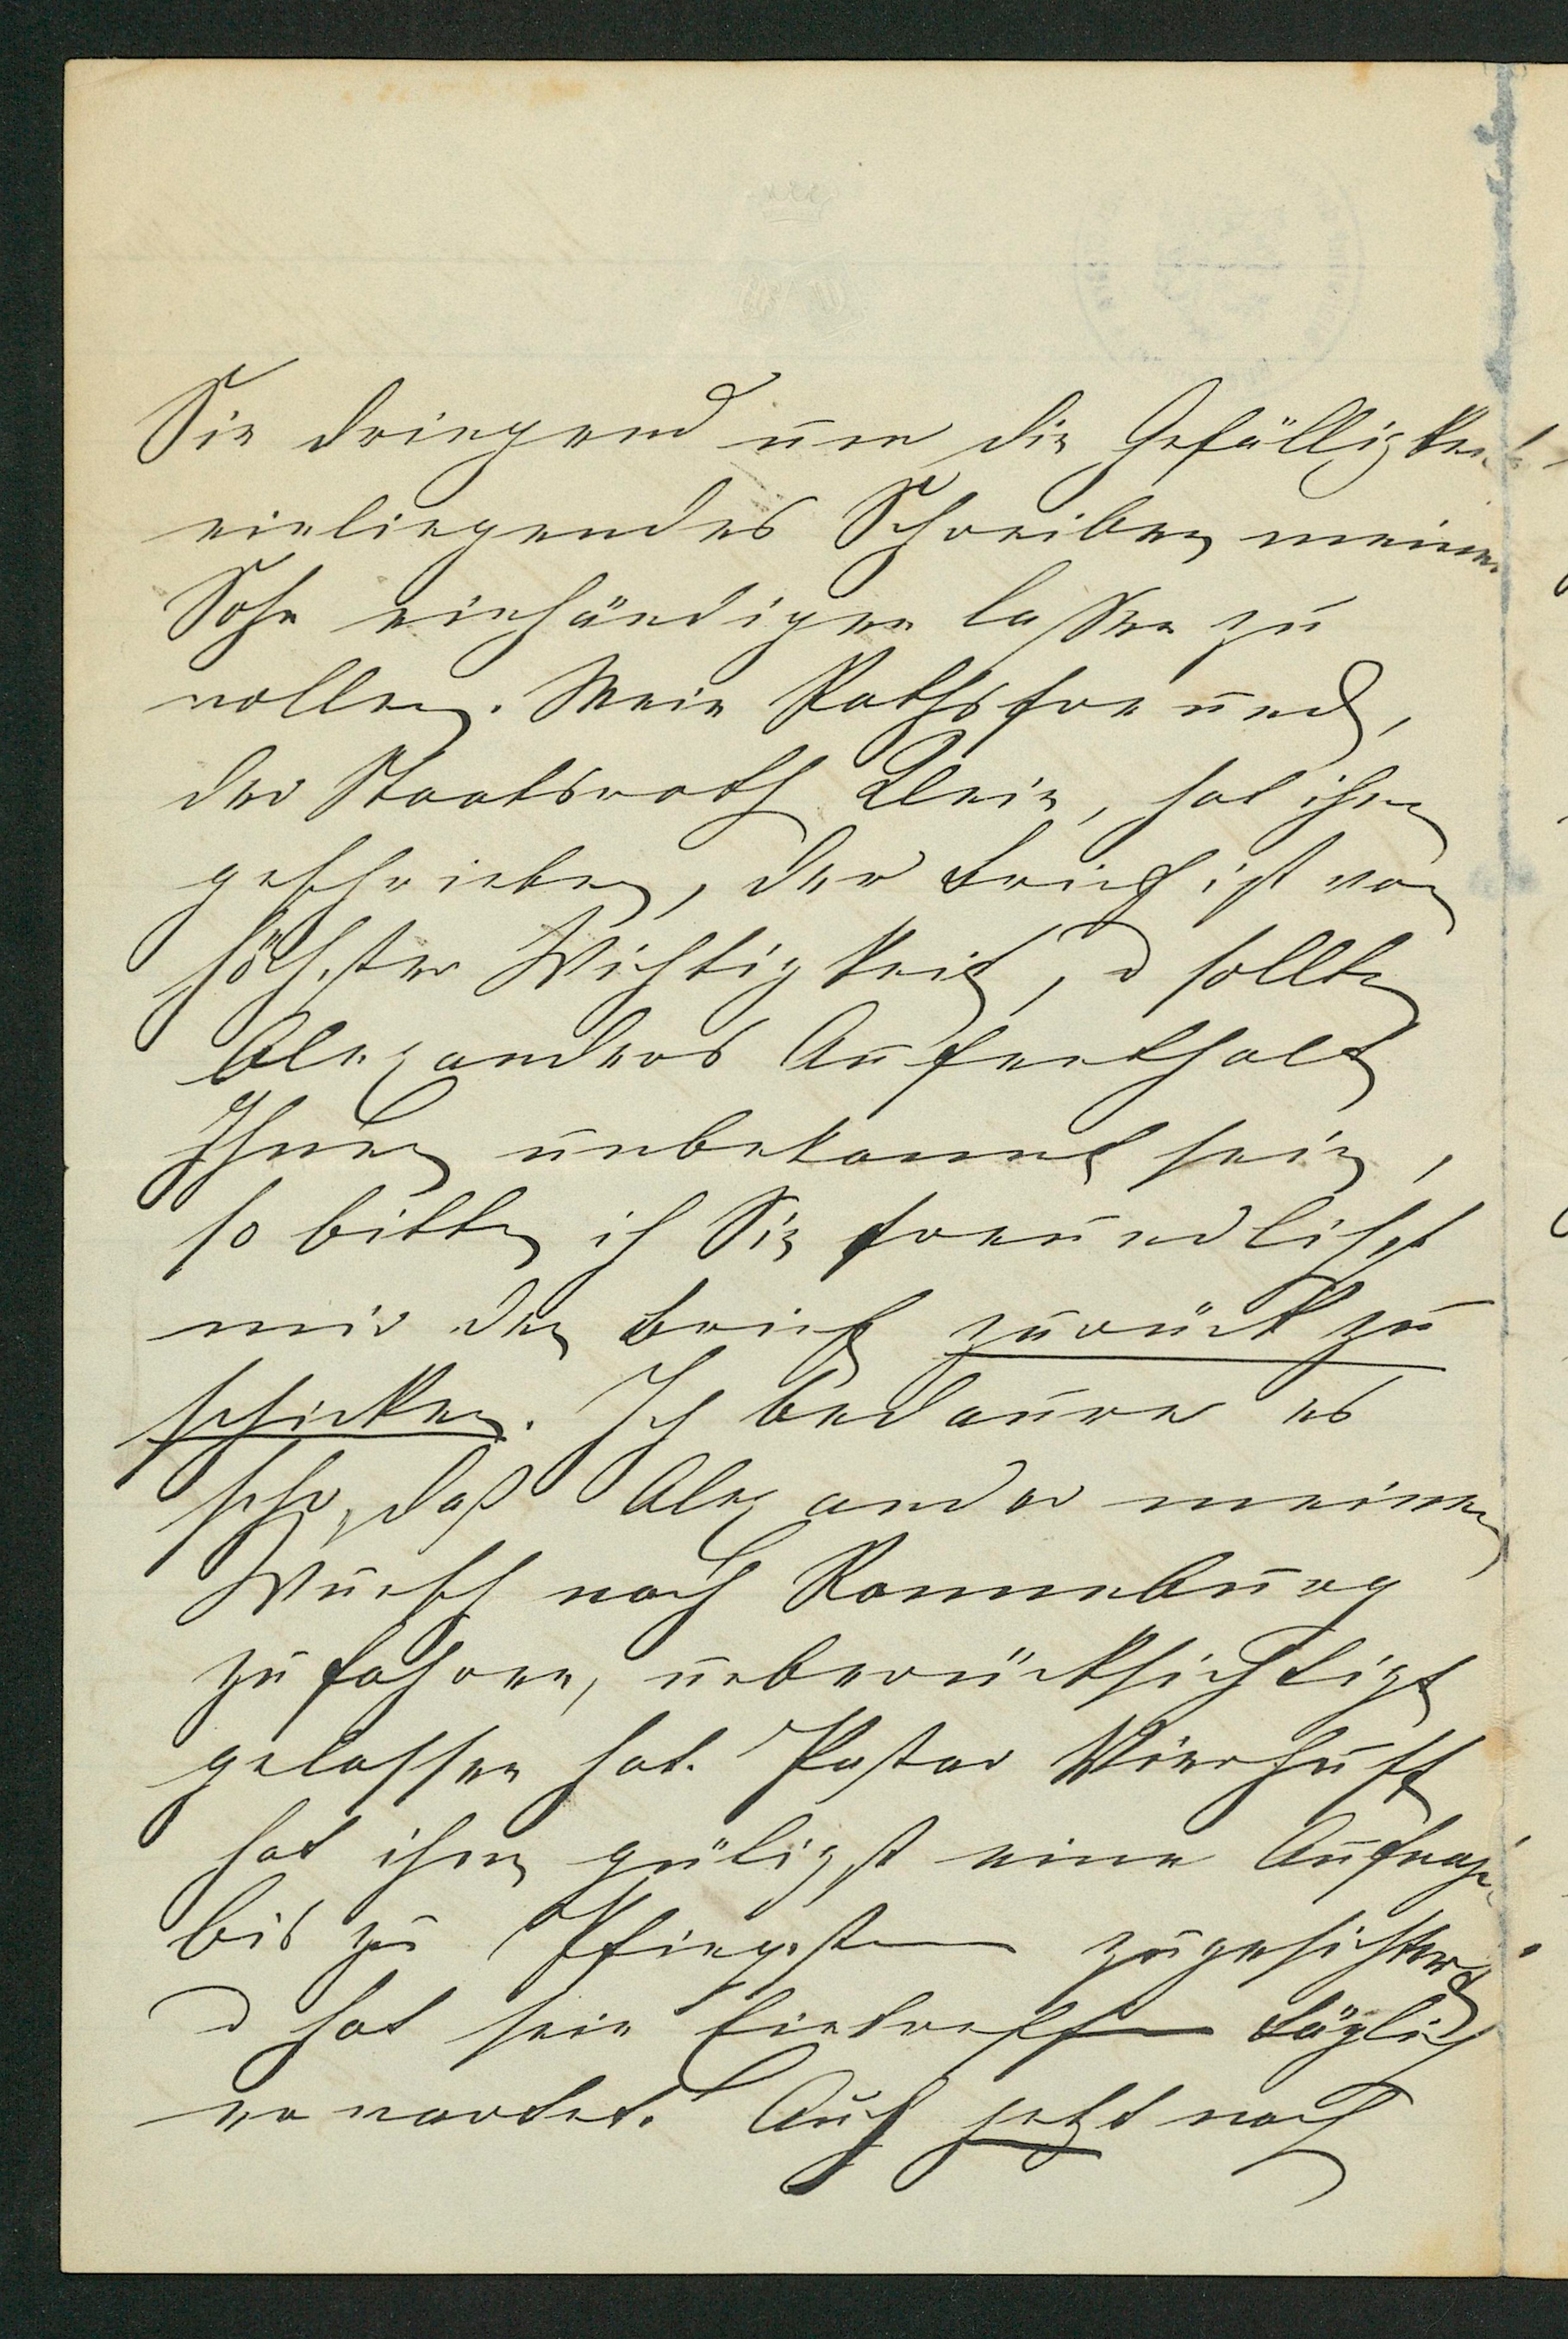 Sie dringend um die Gefälligkeit
einliegendes Schreiben meinem
Sohn einhändigen lassen zu
wollen. Mein Rathsfreund,
der Staatsrath Klein, hat ihm
geschrieben, der Brief ist von
höchster Wichtigkeit, u sollte
Alexanders Aufenthalt
Ihnen unbekannt sein,
so bitte ich Sie freundlichst
mir den Brief zurück zu
schicken. Ich bedaure es
sehr, daß Alexander meinen
Wunsch nach Ronneburg
zu fahren, unberücksichtigt
gelassen hat. Pastor Vierhuff
hat ihm gütigst eine Aufnahme
bis zu Pfingsten zugesichert
u hat sein Eintreffen täglich
erwartet. Auch jetzt noch